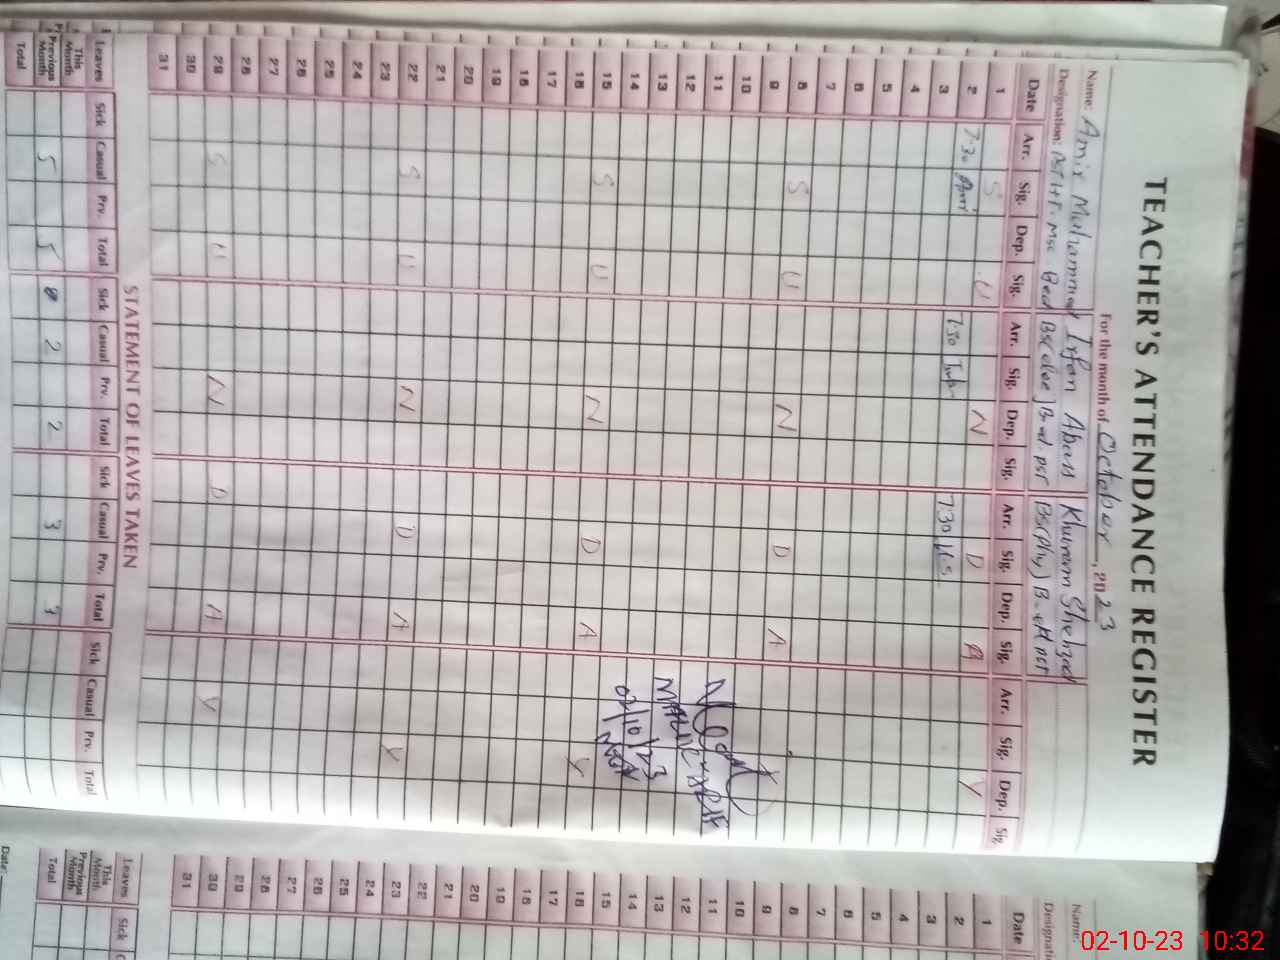 TEACHER'S ATTENDANCE REGISTER
For the month of October, 2023
Name: Amir Muhammad Irfan Abass Khurram Shehzad
Designation: Msc Bed Bsc B.ed. PST Bsc(Phy) B.ed PST
Date Arr. Sig. Dep. Sig. Arr. Sig. Dep. Sig. Arr. Sig. Dep. Sig. Arr. Sig. Dep. Sig.
1 S U N D A Y
2 7-30 7:30 730
3
4
5
6
7
8 S U N D A Y
9
10
11
12
13
14
15 S U N D A Y
16
17
18
19
20
21
22 S U N D A Y
23
24
25
26
27
28
29 S U N D A Y
30
31
02/10/23
STATEMENT OF LEAVES TAKEN
Leaves Sick Casual Prv. Total Sick Casual Prv. Total Sick Casual Prv. Total Sick Casual Prv. Total
This Month
Previous Month 5 5 2 2 3 3
Total
Name:
Date
1
2
3
4
5
6
7
8
9
10
11
12
13
14
15
16
17
18
19
20
21
22
23
24
25
26
27
28
29
30
31
Leaves Sick
This Month
Previous Month
Total
Date:
02-10-23 10:32